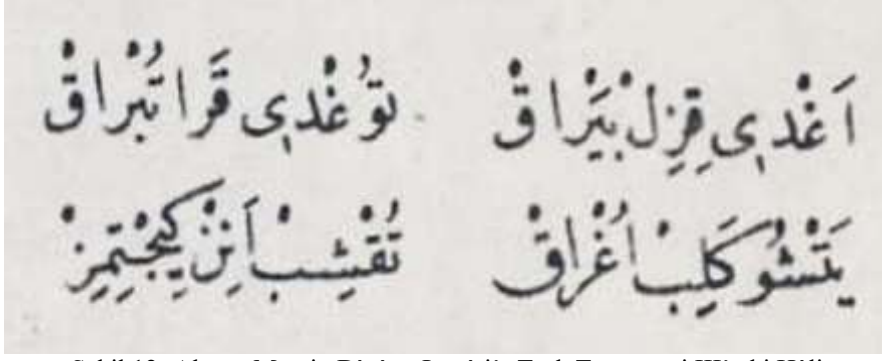 اَغْدىِ قِزِلْ بَيْراقْ تُوغْدىِ قَرا تُبْراقْ
يَتْشُو كَلِبْ اُغْراقْ تُقْشِبْ اَنِنْ كِيجْتِمِزْ